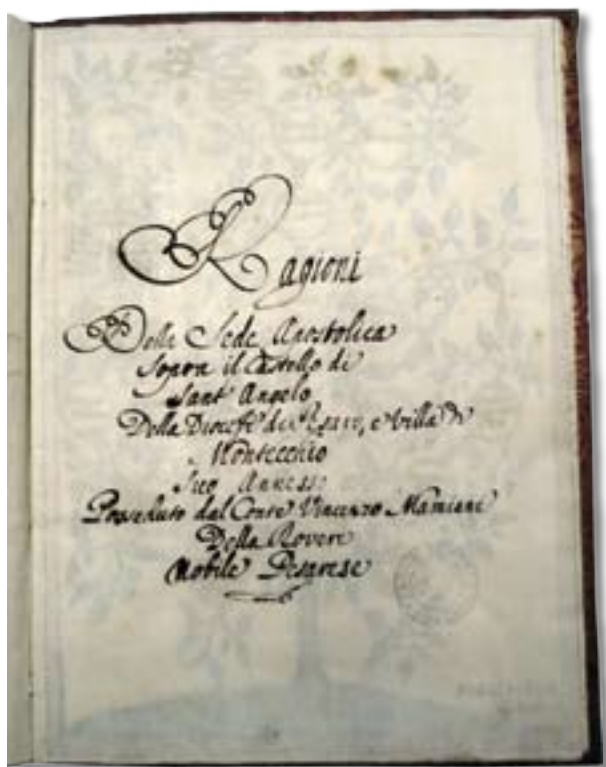 Ragioni
Della Sede Apostolica
sopra il Castello di
Sant' Angelo
Della Diocese di Pesaro, e Villa di
Montecchio
Suo Annesso
Posseduto dal Conte Vincenzo Mamiani
Della Rovere
Nobile Pesarese